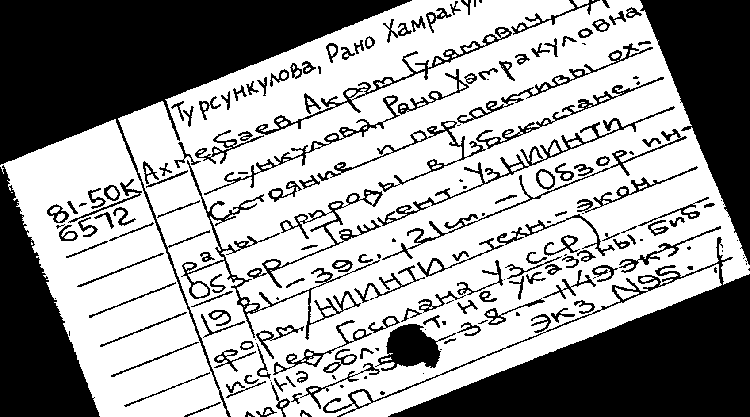 Турсункулова, Рано Хамракул
81-50К
6572
Ахмедбаев, Акрам Гулямович, Тур
сункулова, Рано Хамракуловна.
Состояние и перспективы ох-
раны природы в Узбекистане:
Обзор. - Ташкент: УзНИИНТИ,
1981. - 39 с.; 21 см. - (Обзор. ин-
форм. / НИИНТИ и техн.-экон.
исслед. Госплана УзССР).
На обл. авт. не указаны. Биб-
лиогр.: с. 35-38. - 1149 экз.
экз. N95:
СП.